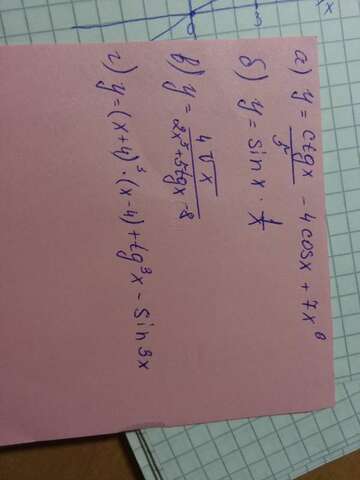 а) y = ctgx/5 - 4cosx + 7x⁸
б) y = sinx · 1/x
в) y = 4√x / 2x³+5tgx-8
г) y = (x+4)³·(x-4) + tg³x - sin³x
x
0
3